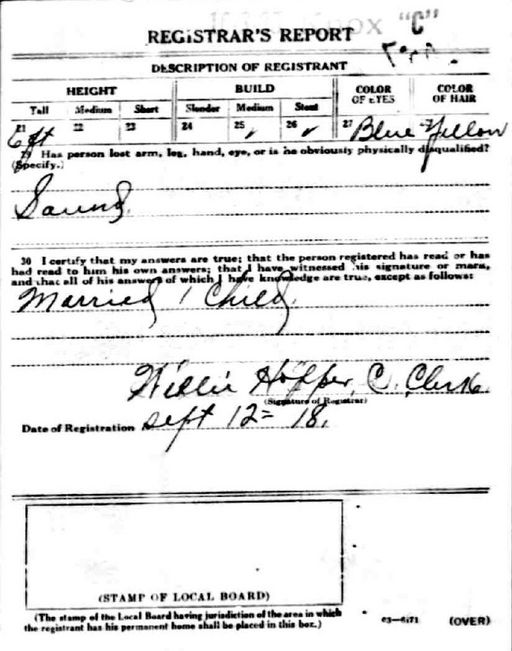 "C"
REGISTRAR'S REPORT
DESCRIPTION OF REGISTRANT
HEIGHT BUILD COLOR OF EYES COLOR OF HAIR
Tall Medium Short Slender Medium Stout
21 22 23 24 25 ✓ 26 ✓ 27
6 ft Blue Yellow
29 Has person lost arm, leg, hand, eye, or is he obviously physically disqualified?
(Specify.)
Sound.
30 I certify that my answers are true; that the person registered has read or has
had read to him his own answers; that I have witnessed his signature or mark,
and that all of his answers of which I have knowledge are true, except as follows:
Married 1 Child.
Willie Hopper, C. Clerk.
(Signature of Registrar)
Date of Registration Sept 12= 18.
(STAMP OF LOCAL BOARD)
(The stamp of the Local Board having jurisdiction of the area in which
the registrant has his permanent home shall be placed in this box.)
03—6171 (OVER)